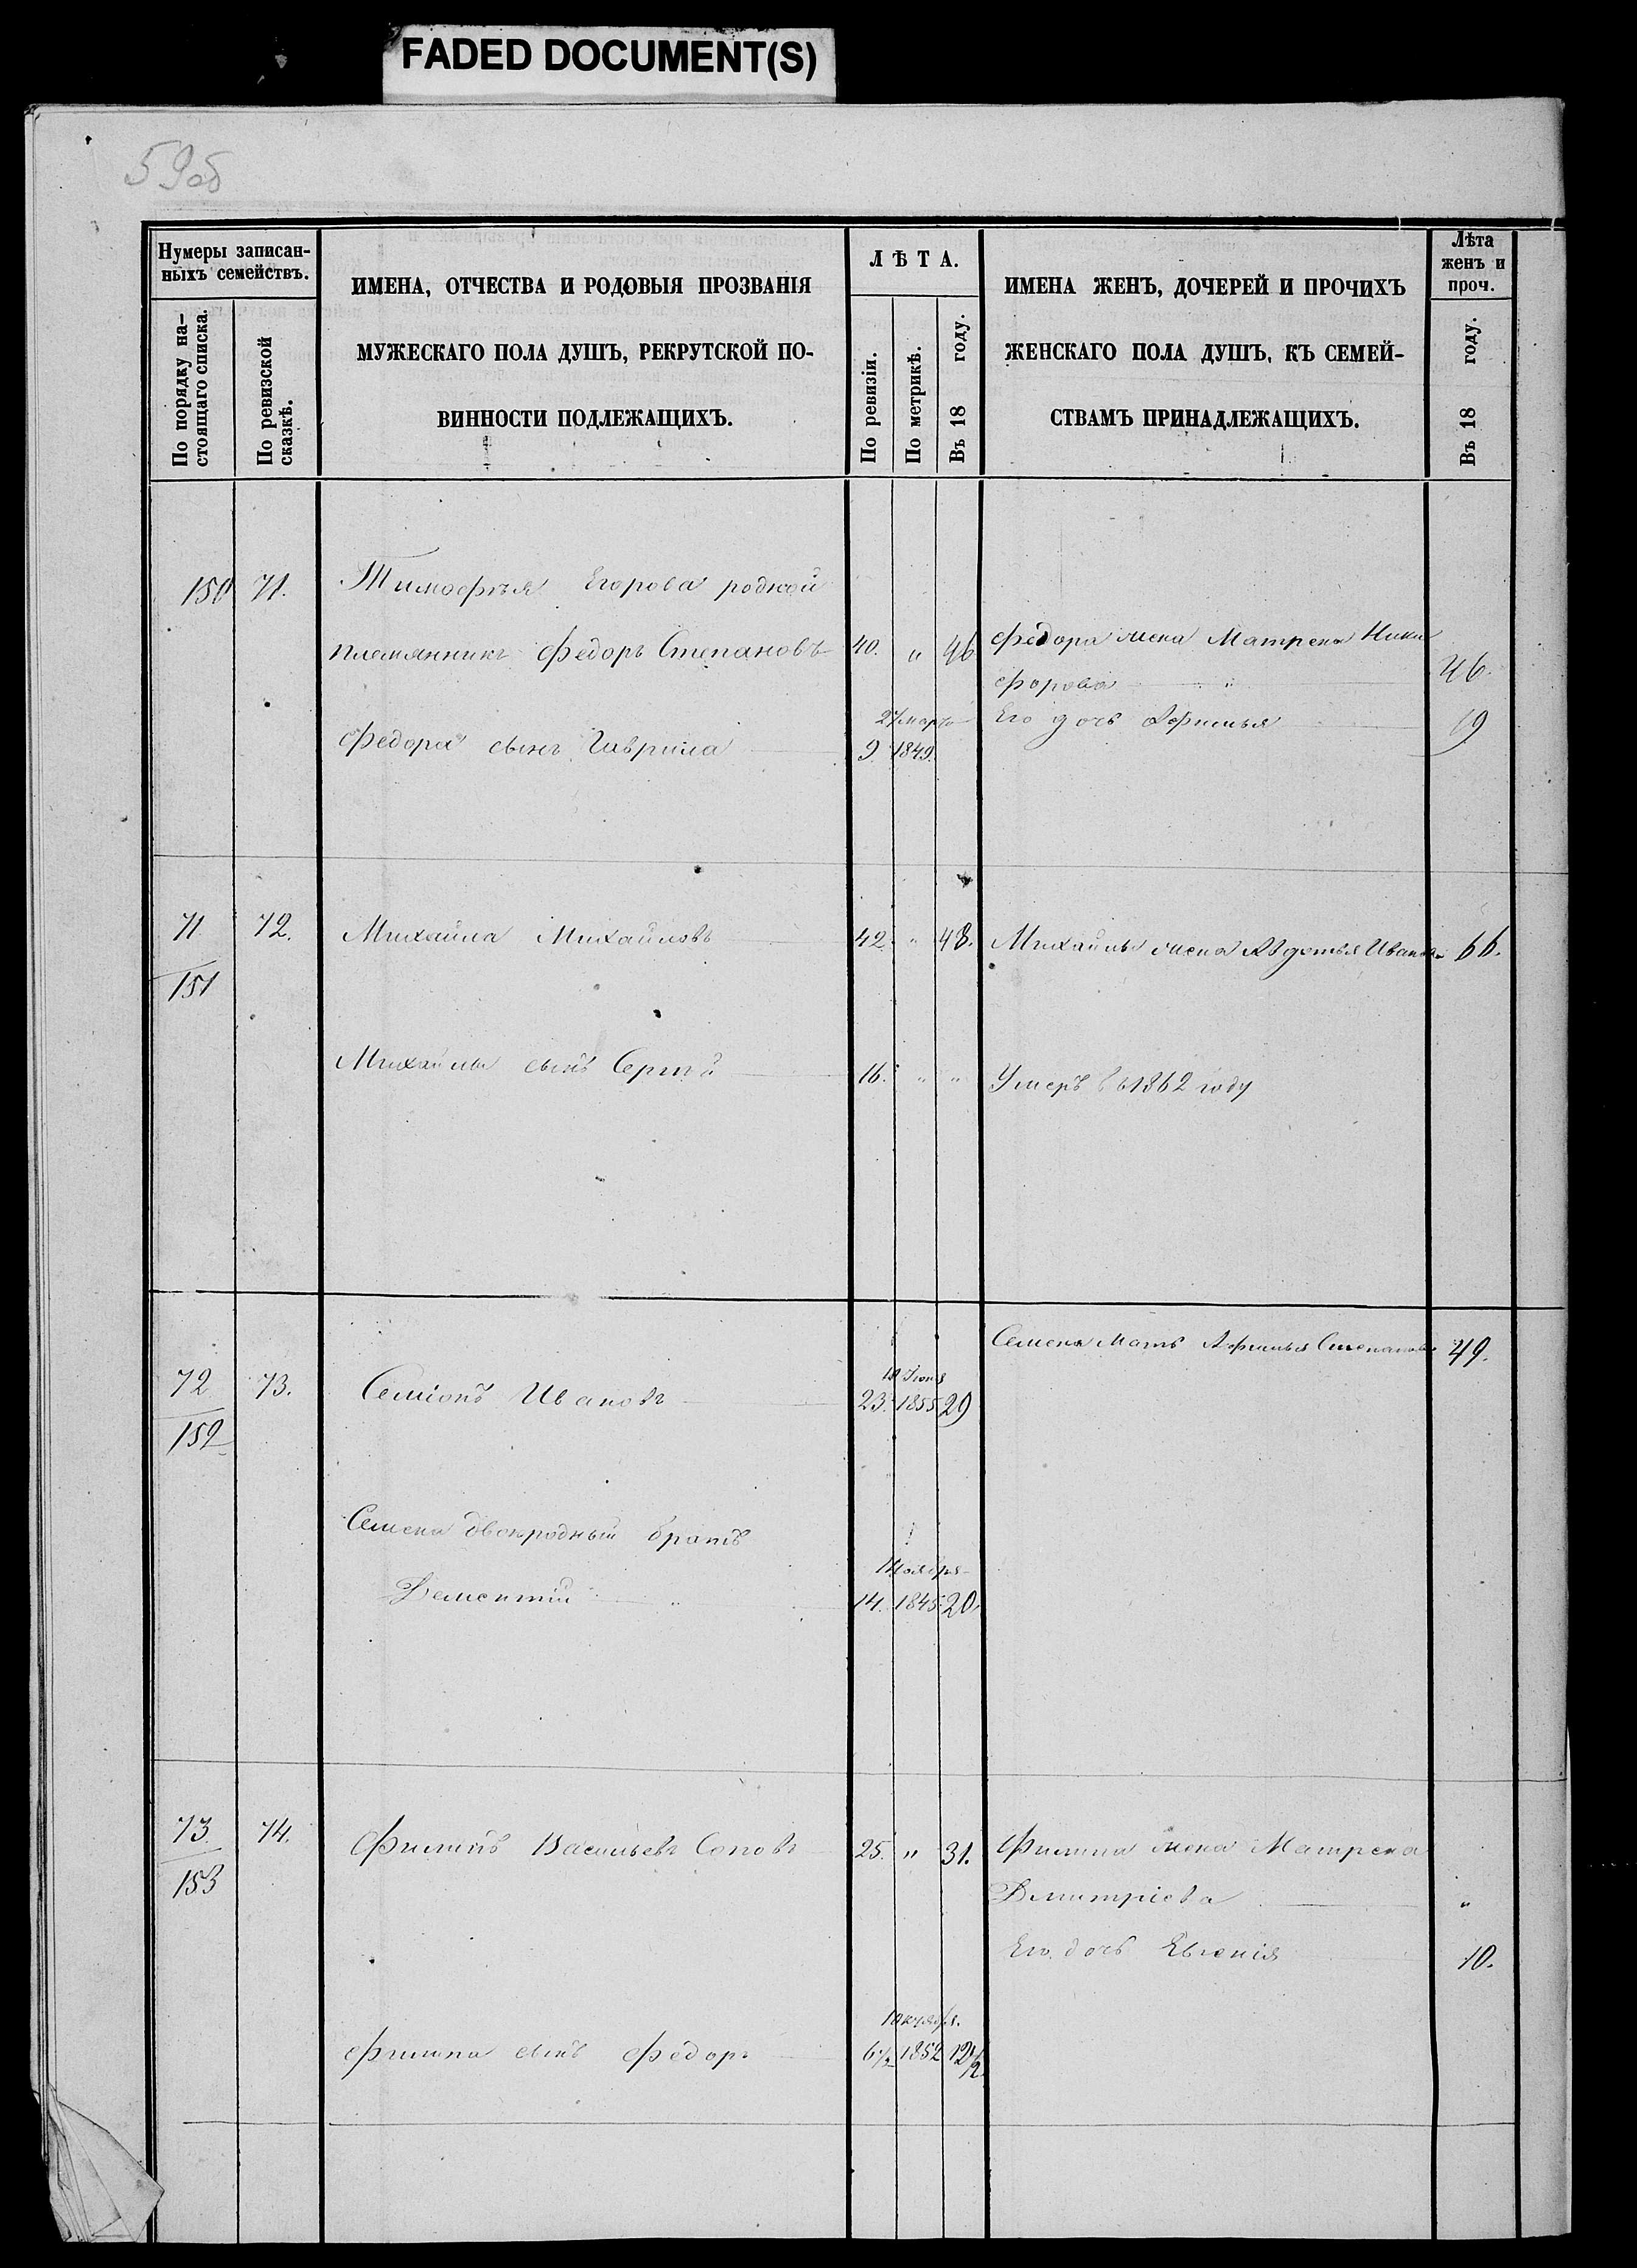 FADED DOCUMENT(S)
59об
Нумеры записан-
ныхъ семействъ.
По порядку на-
стоящаго списка.
По ревизской
сказкѣ.
ИМЕНА, ОТЧЕСТВА И РОДОВЫЯ ПРОЗВАНІЯ
МУЖЕСКАГО ПОЛА ДУШЪ, РЕКРУТСКОЙ ПО-
ВИННОСТИ ПОДЛЕЖАЩИХЪ.
ЛѢТА.
По ревизіи.
По метрикѣ.
Въ 18 году.
ИМЕНА ЖЕНЪ, ДОЧЕРЕЙ И ПРОЧИХЪ
ЖЕНСКАГО ПОЛА ДУШЪ, КЪ СЕМЕЙ-
СТВАМЪ ПРИНАДЛЕЖАЩИХЪ.
Лѣта
женъ и
проч.
Въ 18 году.
150 71. Тимофѣя Егорова родной
племянникъ Федоръ Степановъ 40. " 46 Федора жена Матрена Ники
форова " 46.
27 мар
Его дочь Афимья 19
Федора сынъ Гаврила 9 1849.
71 72. Михайла Михайловъ 42. " 48. Михайлы жена Авдотья Иванова 66.
151
Михайлы сынъ Сергѣй 16. " " Умеръ въ 1862 году
Семена мать Афимья Степанова 49.
72 73. Семіонъ Ивановъ 23. 1855 29
Іюня
152
Семена двоюродный братъ
Ноября
Дементій " 14. 1845 20.
73 74. Филипъ Васильевъ Соповъ 25. " 31. Филипа жена Матрена
153
Дмитріева "
Его дочь Евгенія 10.
Филипа сынъ Федоръ 6½ 1852 12½.